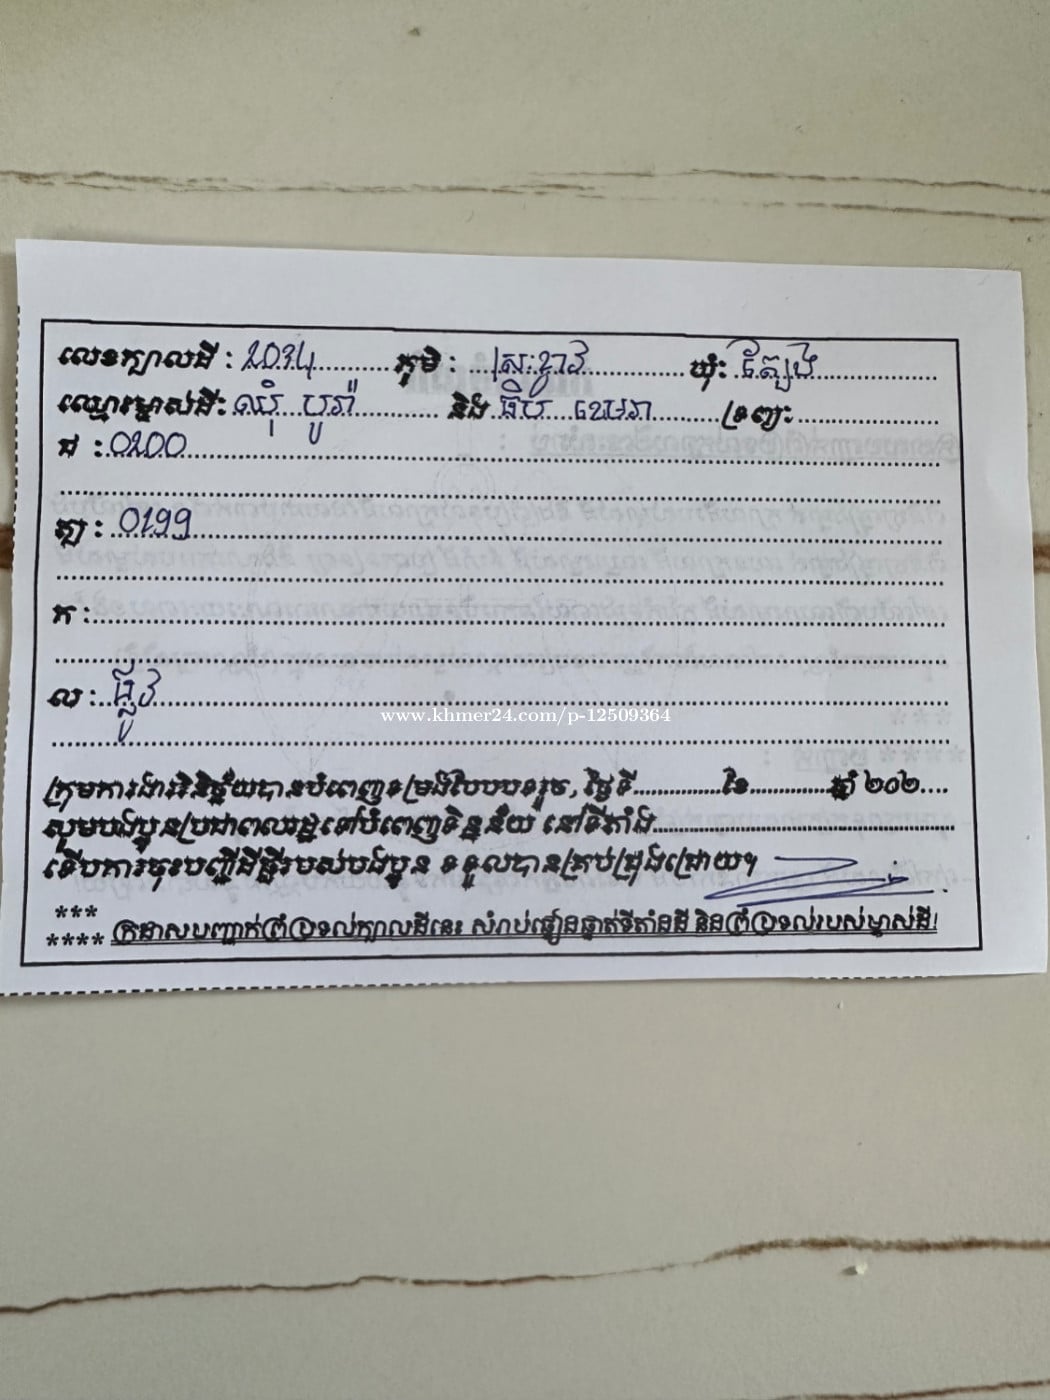 លេខក្បាលដី : ភូមិ : ស្រះខ្វាវ ឃុំ:
ឈ្មោះម្ចាស់ដី: ឈុំ បូរ៉ា និង ធីប ខេមរា ទ្រព្យ:
ជ : 0200
ត្ប : 0199
ក :
ល : ផ្លូវ
www.khmer24.com/p-12509364
ក្រុមការងារវិនិច្ឆ័យបានបំពេញទម្រង់បែបបទរួច, ថ្ងៃទី ខែ ឆ្នាំ ២០២
សូមបងប្អូនប្រជាពលរដ្ឋទៅបំពេញទិន្នន័យ នៅទីតាំង
ទើបការចុះបញ្ជីដីធ្លីរបស់បងប្អូន ទទួលបានគ្រប់ជ្រុងជ្រោយ។
***
**** ក្រដាសបញ្ជាក់ព្រំប្រទល់ក្បាលដីនេះ សំរាប់ផ្ទៀងផ្ទាត់ទីតាំងដី និងព្រំប្រទល់របស់ម្ចាស់ដី!